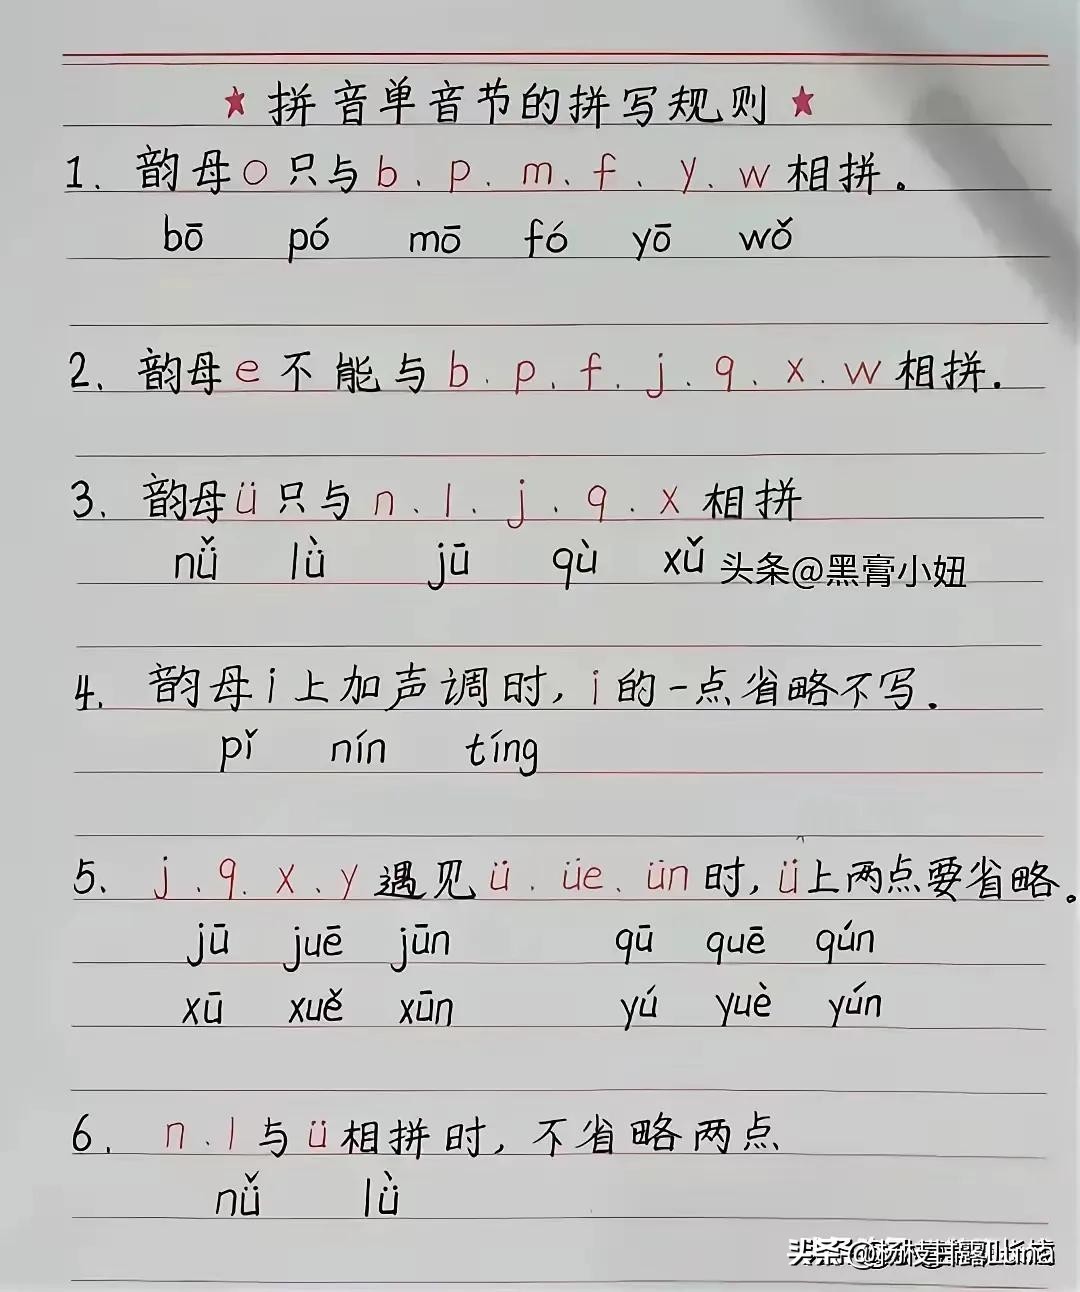 ★ 拼音单音节的拼写规则 ★
1. 韵母o只与b、p、m、f、y、w相拼。
bō pó mō fó yō wǒ
2. 韵母e不能与b、p、f、j、q、x、w相拼.
3. 韵母ü只与n、l、j、q、x相拼
nǚ lǜ jū qù xǔ 头条@黑膏小妞
4. 韵母i上加声调时,i的一点省略不写.
pǐ nín tíng
5. j、q、x、y遇见ü、üe、ün时,ü上两点要省略。
jū juē jūn qū quē qún
xū xuě xūn yú yuè yún
6. n、l与ü相拼时,不省略两点
nǚ lǜ
头条